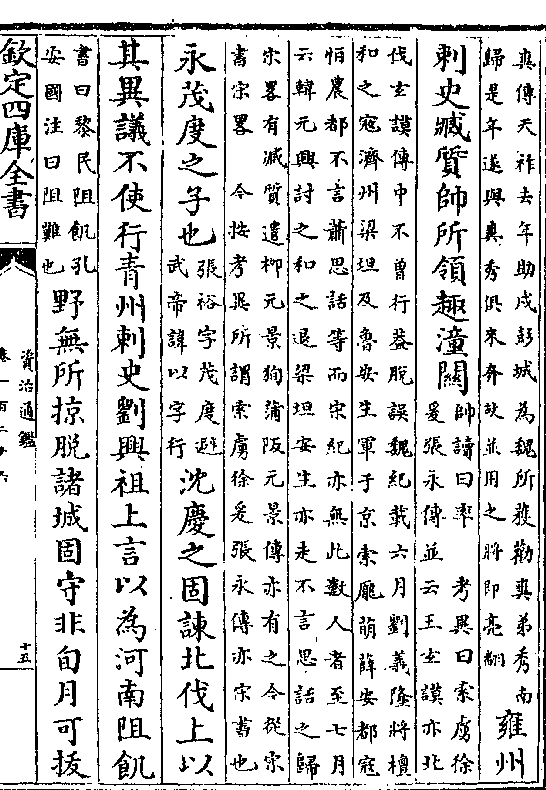 爽傳天祚去年助戍彭城為魏所獲勸爽弟秀南
歸是年遂與爽秀俱來奔故並用之將即亮翻
雍州
刺史臧質帥所領趣潼關
帥讀曰率 考異曰索虜徐
爰張永傳並云王玄謨亦北
伐玄謨傳中不曾行蓋脱誤魏紀載六月劉義隆將檀
和之寇濟州梁坦及魯安生軍于京索龎萌薛安都寇
恒農都不言蕭思話等而宋紀亦無此數人者至七月
云韓元興討之和之退梁坦安生亦走不言思話之歸
宋畧有臧質遣栁元景狥蒲阪元景傳亦有之今從宋
書宋畧 今按考異所謂索虜徐爰張永傳亦宋書也
永茂度之子也
張裕字茂度避
武帝諱以字行
沈慶之固諫北伐上以
其異議不使行青州刺史劉興祖上言以為河南阻飢
書曰黎民阻飢孔
安國注曰阻難也
野無所掠脱諸城固守非旬月可拔
欽定四庫全書
資治通鑑
十五